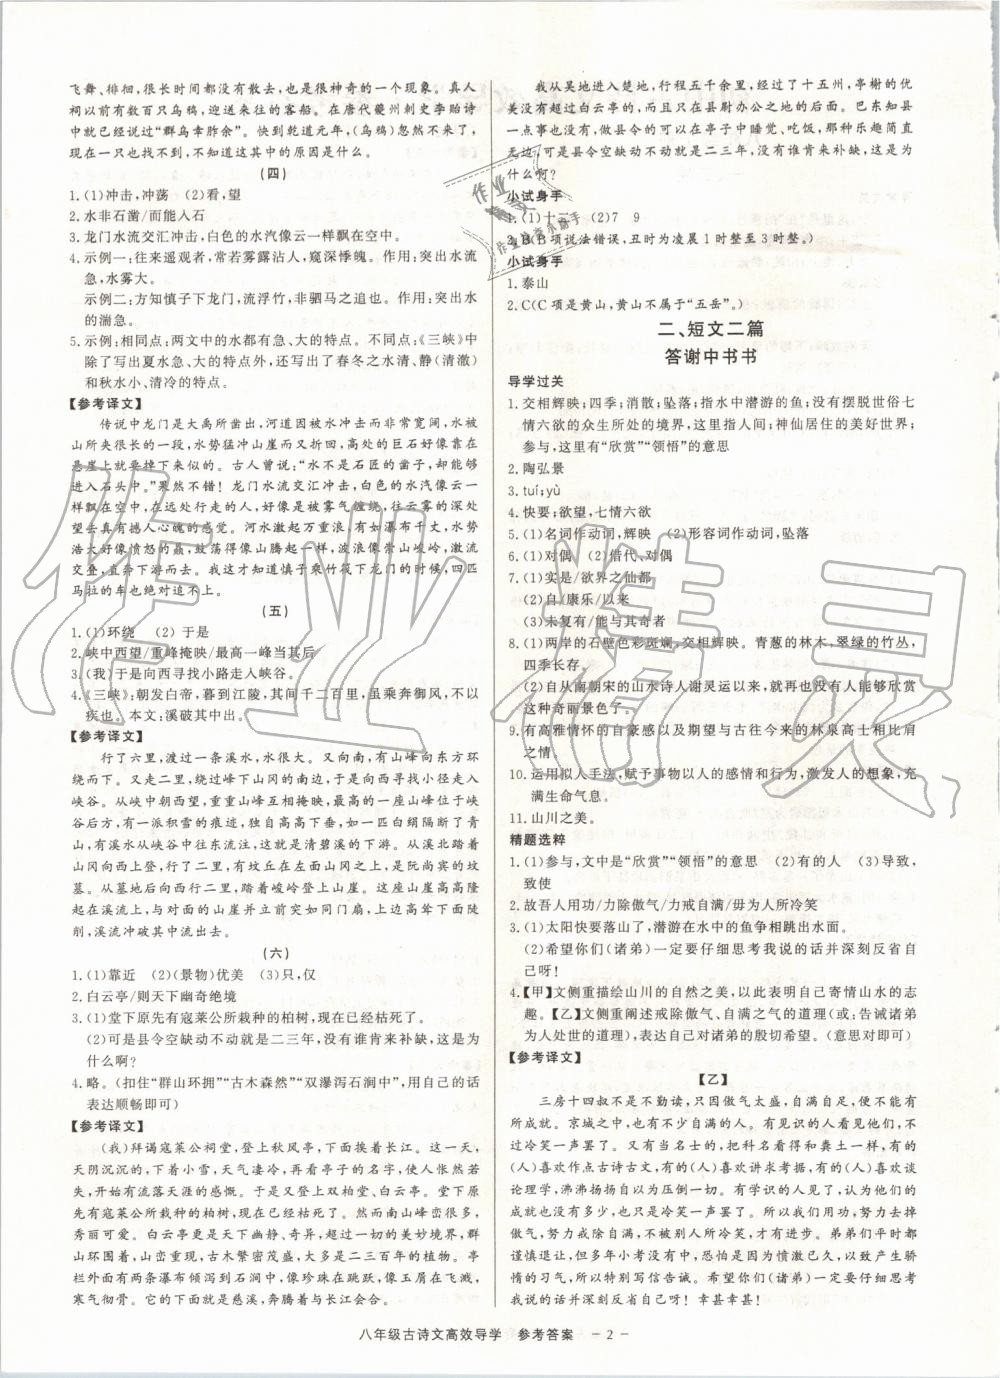 飞舞、徘徊，很长时间都没有散去，也是很神奇的一个现象。真人
祠以前有数百只乌鸦，迎送来往的客船。在唐代夔州刺史李贻诗
中就已经说过“群乌幸胙余”。快到乾道元年，（乌鸦）忽然不来了，
现在一只也找不到，不知道这其中的原因是什么。
(四)
1.(1)冲击，冲荡　(2)看，望
2.水非石凿/而能入石
3.龙门水流交汇冲击，白色的水汽像云一样飘在空中。
4.示例一：往来遥观者，常若雾露沾人，窥深悸魄。作用：突出水流
急，水雾大。
示例二：方知慎子下龙门，流浮竹，非驷马之追也。作用：突出水
的湍急。
5.示例：相同点：两文中的水都有急、大的特点。不同点：《三峡》中
除了写出夏水急、大的特点外，还写出了春冬之水清、静（清澈）
和秋水小、清冷的特点。
【参考译文】
传说中龙门是大禹所凿出，河道因为被水冲击而非常宽，水被
山所夹很长的一段，水势猛冲山崖而又折回，高处的巨石好像靠在
悬崖上就要掉下来似的。古人曾说：“水不是石匠的凿子，却能够
进入石头中。”果然不错！龙门水流交汇冲击，白色的水汽像云一
样飘在空中，在远处行走的人，好像被雾气缠绕，往云雾的深处
望去真有撼人心魄的感觉。河水激起万重浪，有如瀑布千丈，水势
浩大好像愤怒的鼎，波荡得像山腾起一样，波浪汹涌，激流
交叠，直奔下游。我这才知道慎子乘竹筏下龙门的时候，四匹
马拉的车也绝对追不上。
(五)
1.(1)环绕　(2)于是
2.峡中西望/重峰掩映/最高一峰当其后
3.（我）于是向西寻找小路走入峡谷。
4.《三峡》：朝发白帝，暮到江陵，其间千二百里，虽乘奔御风，不以
疾也。本文：溪破其中出。
【参考译文】
行了六里，渡过一条溪水，水很大。又向南，有山峰向东方环
绕而下。又走二里，绕过下山冈的南边，于是向西寻找小路走进
峡谷。从峡中朝西望，重重山峰互相掩映，最高的一座山峰在峡
谷后方，有一派积雪的痕迹，独自高高下垂，如一匹白绢隔断了青
山，有溪水从峡谷中往东流注，这就是清碧溪的下游。从溪北踏着
山冈向西上，行了二里，有坟丘在左面山冈之上，是阮尚宾的坟
墓。从墓地后向西行二里，踏着峻岭登上山崖。这条溪高高隆
起在溪流上，与对面的山崖并立前突如同门扇，上边高耸下面陡
削，溪流冲破其中流出。
(六)
1.(1)靠近　(2)（景物）优美　(3)只，仅
2.白云亭/则天下幽奇绝境
3.(1)堂下原先有寇莱公所栽种的柏树，现在已经枯死了。
(2)可是县令空缺动不动就是二三年，没有谁肯来补缺，这是为
什么啊？
4.略。（扣住“群山环拥”“古木森然”“双瀑泻石涧中”，使用自己的话
表达顺畅即可）
【参考译文】
（我）拜谒寇莱公祠堂，登上秋风亭，下面挨着长江。这一天，
天阴沉沉的，下着小雪，天气凄冷，一再看亭子的名字，使人感到惆
怅，开始有流落天涯的感慨。于是又登上双柏堂、白云亭。堂下原
先有寇莱公所栽种的柏树，现在已经枯死了。然而南山重重叠叠，
秀丽可爱。白云亭更是天下幽静、奇丽到极点的美妙境界，群
山环围，层层叠出，古木繁密茂盛，大多是二三百年的植物。亭
栏外面有两条瀑布倾泻到石涧中，像珍珠在跳跃，像玉屑在飞溅，
寒气彻骨。它的下面就是慈溪，奔腾着与长江会合。
我从吴地进入楚地，行程五千余里，经过了十五州，亭榭的优
美没有超过白云亭的，而且只在县尉办公之地的后面。巴东知县
一点事也没有，做县令的可以在亭子中睡觉、吃饭，那种乐趣简直
无边，可是县令空缺动不动就是二三年，没有谁肯来补缺，这是为
什么啊？
小试身手
1.(1)十二　(2)7　9
2.B(B项说法错误，丑时为凌晨1时整至3时整。)
小试身手
1.泰山
2.C(C项是黄山，黄山不属于“五岳”。)
二、短文二篇
答谢中书书
导学过关
1.交相辉映；四季；消散；坠落；指水中潜游的鱼；没有摆脱世俗七
情六欲的众生所处的境界，这里指人间；神仙居住的美好世界；
参与，这里有“欣赏”“领悟”的意思
2.陶弘景
3.tuí；yù
4.快要；欲望，七情六欲
5.(1)名词作动词，辉映　(2)形容词作动词，坠落
6.(1)对偶　(2)借代、对偶
7.(1)实是/欲界之仙都
(2)自/康乐/以来
(3)未复有/能与其奇者
8.(1)两岸的石壁色彩斑斓，交相辉映。青葱的林木，翠绿的竹丛，
四季长存。
(2)自从南朝宋的山水诗人谢灵运以来，就再也没有人能够欣赏
这种奇丽景色了。
9.有高雅情怀的自豪感以及期望与古往今来的林泉高士相比肩
之情
10.运用拟人手法，赋予事物以人的感情和行为，激发人的想象，充
满生命气息。
11.山川之美。
精题选粹
1.(1)参与，文中是“欣赏”“领悟”的意思　(2)有的人　(3)导致，
致使
2.故吾人用功/力除傲气/力戒自满/毋为人所冷笑
3.(1)太阳快要落山了，潜游在水中的鱼争相跳出水面。
(2)希望你们（诸弟）一定要仔细思考我说的话并深刻反省自
己呀！
4.【甲】文侧重描绘山川的自然之美，以此表明自己寄情山水的志
趣。【乙】文侧重阐述戒除傲气、自满之气的道理（或：告诫诸弟
为人处世的道理），表达自己对诸弟的殷切希望。（意思对即可）
【参考译文】
【乙】
三房十四叔不是不勤读，只因傲气太盛，自满自足，便不能有
所成就。京城之中，也有很多自满的人。有见识的人看见他们，不
过冷笑一声罢了。又有当名士的，把科名看得和粪土一样，有的
（人）喜欢作点古诗古文，有的（人）喜欢讲求考据，有的（人）喜欢谈
论理学，沸沸扬扬自以为压倒一切。有学识的人见到他们，认为他
们的成就也没有多少，也只好冷笑一声罢了。所以我们用功，去掉
傲气，力求不自满，不让别人所冷笑，才有进步。弟弟们平时都
谨慎退让，但因多年小考没有中，恐怕是因为愤激已久，以致产生骄
惰的习气，所以特别写信告诫。希望你们（诸弟）一定要仔细思考
我说的话并深刻反省自己呀！幸甚幸甚！
八年级古诗文高效导学　参考答案　－2－